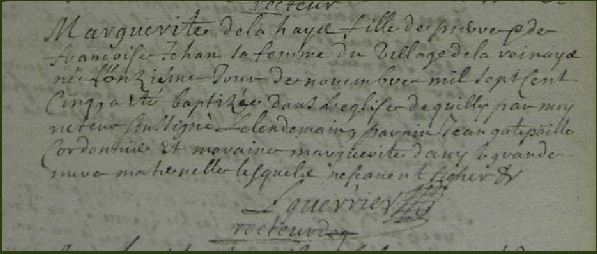 recteur
Marguerite de la haye fille de pierre & de
francoise Jehan sa femme du village de la voinaye
née l'onzieme jour de novembre mil sept cent
Cinq a été baptizée dans l'eglise de quilly par moy
recteur soussigné le lendemain, parain Jean gatepaille
Cordonnier et maraine marguerite dany la grande
mere maternelle lesquels ne signer &
L guerrier
recteur de